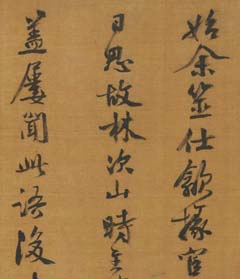 始余筮仕歙掾宦
日思故林次山時
蓋屢聞此語後